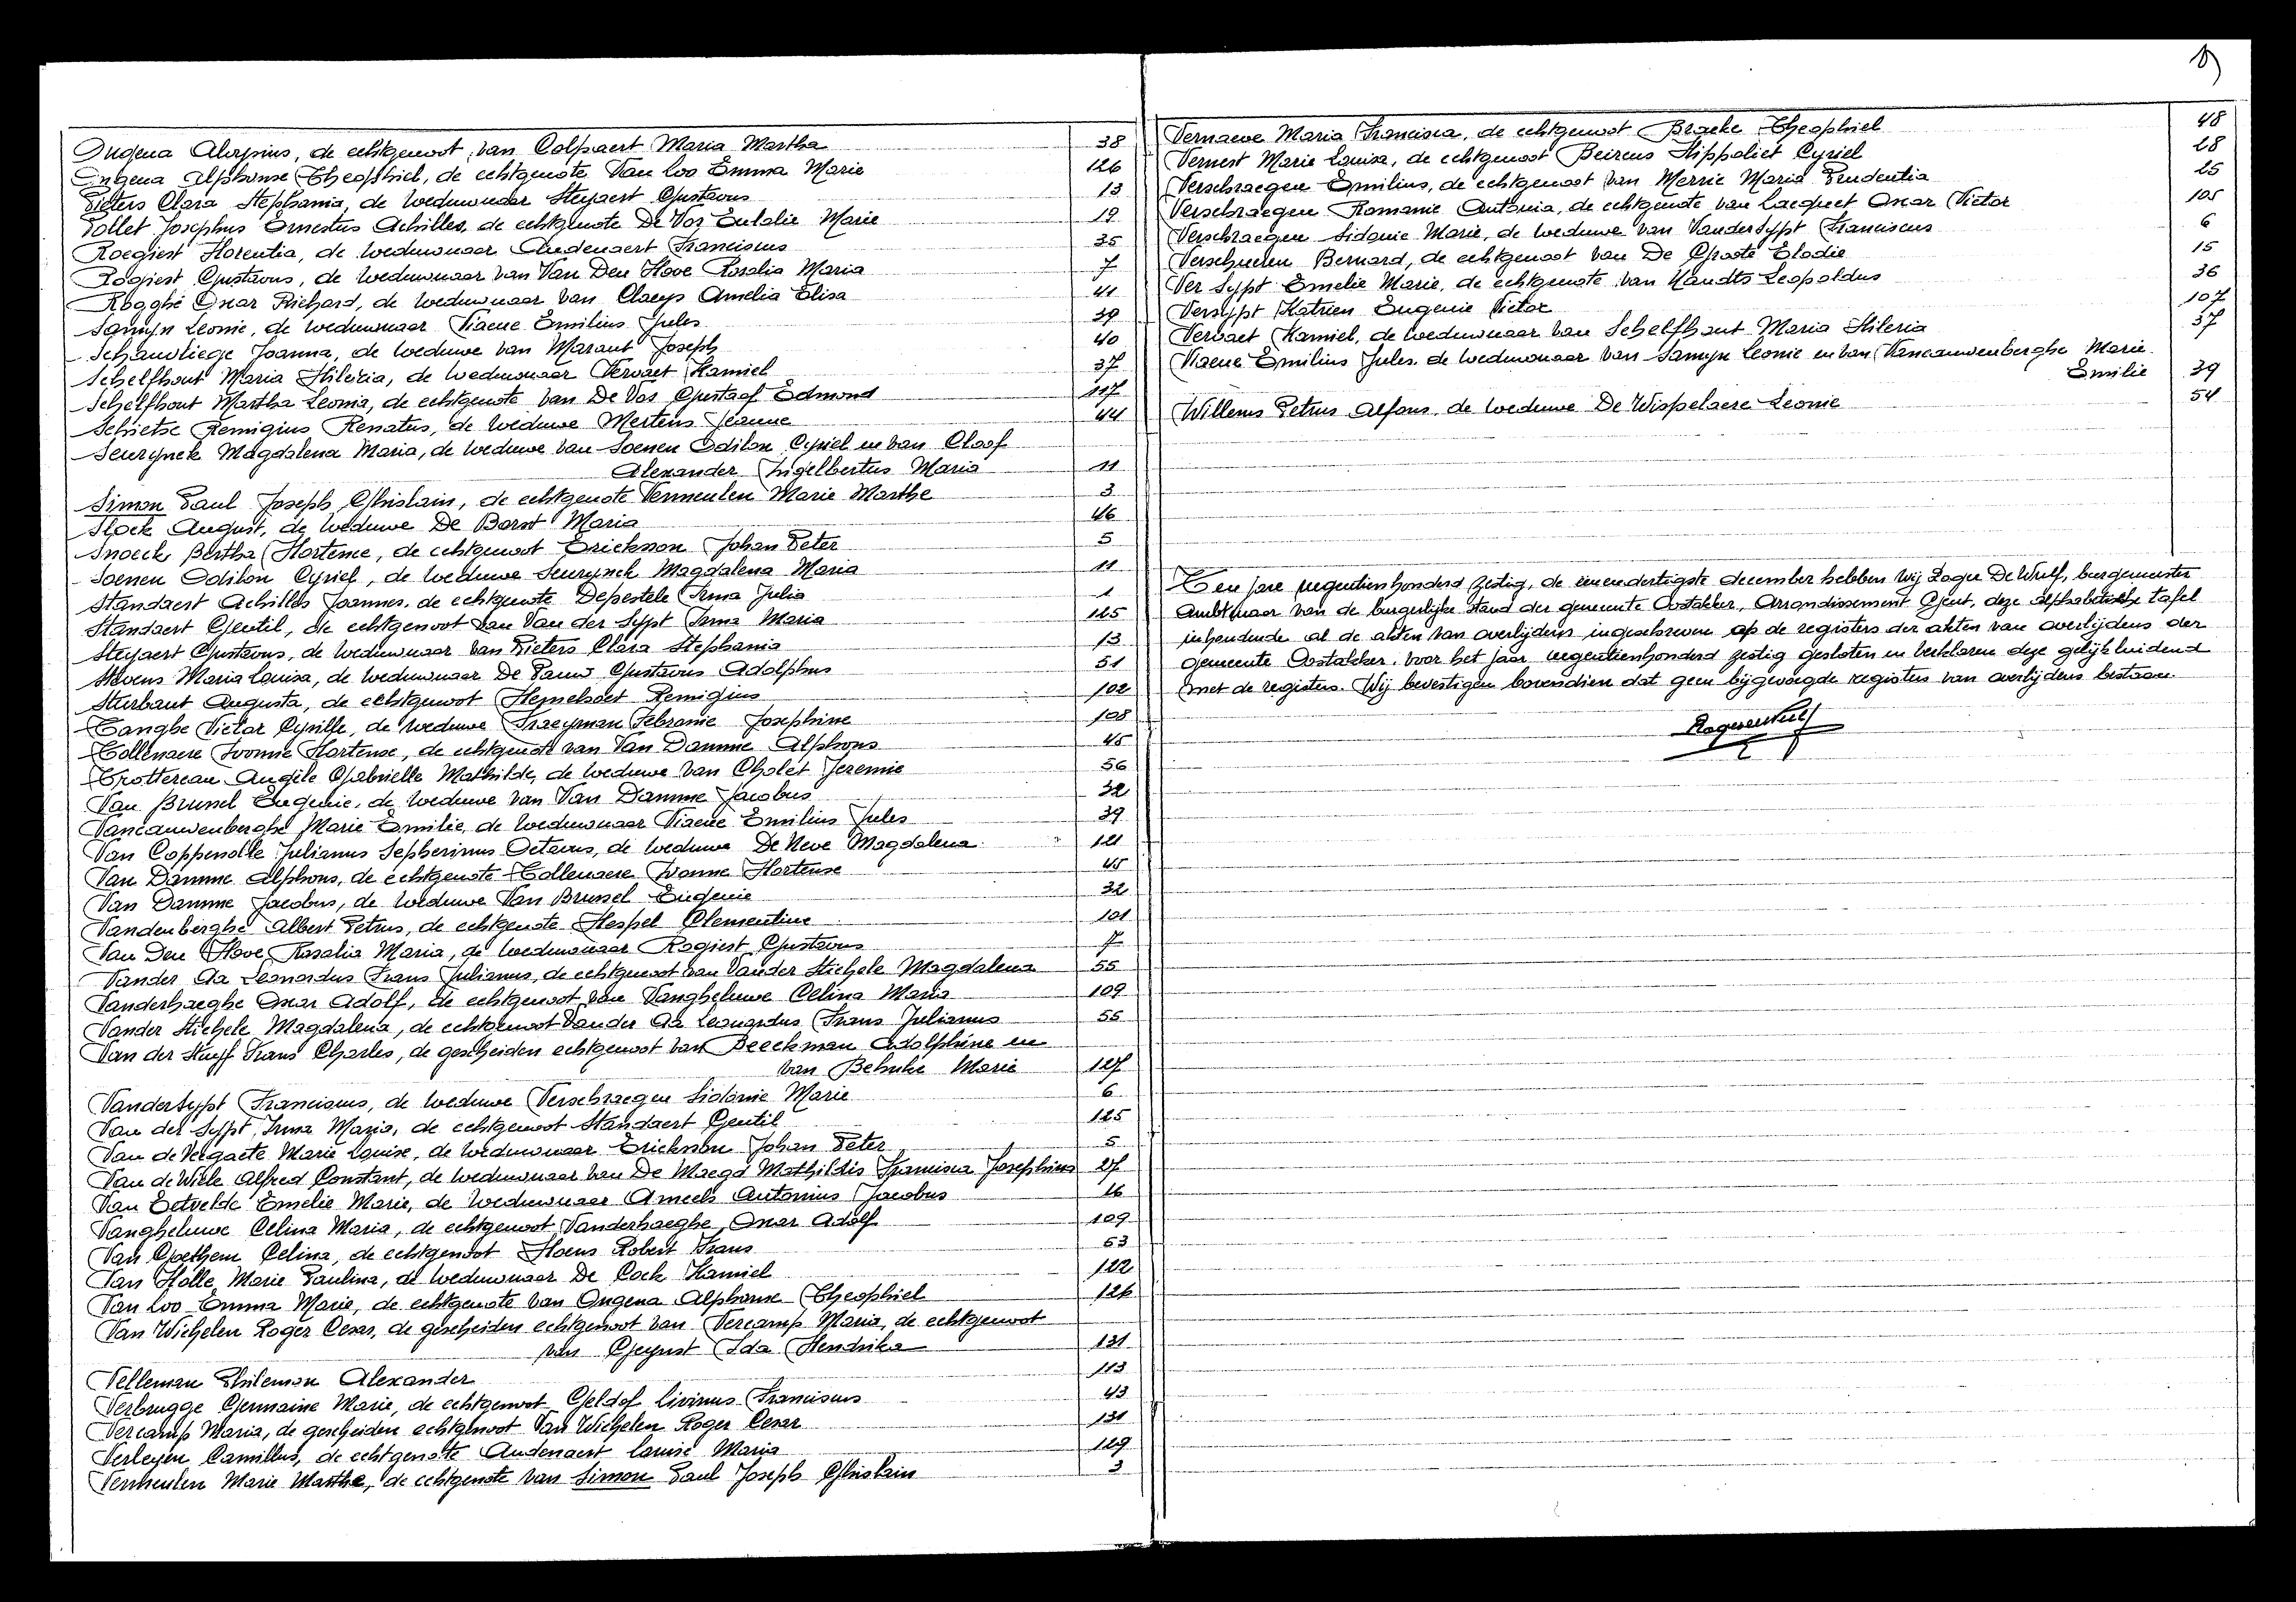 Ongena Aloysius, de echtgenoot van Colpaert Maria Martha 38
Ongena Alphonse Theophiel, de echtgenote Van Loo Emma Marie 126
Pieters Clara Stephania, de weduwnaar Steyaert Gustavus 13
Pollet Josephus Ernestus Achilles, de echtgenote De Vos Eulalie Marie 19
Roegiest Florentia, de weduwnaar Audenaert Franciscus 35
Rogiest Gustavus, de weduwnaar van Van Den Hove Rosalia Maria 7
Rogghé Oscar Richard, de weduwnaar van Claeys Amelia Elisa 41
Samyn Leonie, de weduwnaar Viaene Emilius Jules 39
Schauvliege Joanna, de weduwe van Maraut Joseph 40
Schelfhout Maria Hileria, de weduwnaar Vervaet Kamiel 37
Schelfhout Martha Leonia, de echtgenote van De Vos Gustaaf Edmond 117
Schietse Remigius Renatus, de weduwe Mertens Jeanne 44
Seurynck Magdalena Maria, de weduwe van Soenen Odilon Cyriel en van Cloof
Alexander Ingelbertus Maria 11
Simon Paul Joseph Ghislain, de echtgenote Vermeulen Marie Marthe 3
Slock August, de weduwe De Borst Maria 46
Snoeck Bertha Hortense, de echtgenoot Erickson Johan Peter 5
Soenen Odilon Cyriel, de weduwe Seurynck Magdalena Maria 11
Standaert Achilles Joannes, de echtgenote Depestele Irma Julia 1
Standaert Gentil, de echtgenoot van Van der Sypt Irma Maria 125
Steyaert Gustavus, de weduwnaar van Pieters Clara Stephania 13
Stevens Maria Louisa, de weduwnaar De Pauw Gustavus Adolphus 51
Sturbaut Augusta, de echtgenoot Hemelsoet Remigius 102
Tanghe Victor Cyrille, de weduwe Traeyman Febranie Josephine 108
Tollenaere Ivonne Hortense, de echtgenote van Van Damme Alphons 45
Trottereau Angèle Gabrielle Mathilde, de weduwe van Cholet Jeremie 56
Van Brussel Eugenie, de weduwe van Van Damme Jacobus 32
Vancauwenberghe Marie Emilie, de weduwnaar Viaene Emilius Jules 39
Van Coppenolle Julianus Sepherinus Octavus, de weduwe De Neve Magdalena 121
Van Damme Alphons, de echtgenote Tollenaere Ivonne Hortense 45
Van Damme Jacobus, de weduwe Van Brussel Eugenie 32
Vandenberghe Albert Petrus, de echtgenote Hespel Clementine 101
Van Den Hove Rosalia Maria, de weduwnaar Rogiest Gustavus 7
Vander Aa Leonardus Frans Julianus, de echtgenoot van Vander Stichele Magdalena 55
Vanderhaeghe Oscar Adolf, de echtgenoot van Vangheluwe Celina Maria 109
Vander Stichele Magdalena, de echtgenoot Vander Aa Leonardus Frans Julianus 55
Van der Stuyff Frans Charles, de gescheiden echtgenoot van Beeckman Adolphine en
van Behuke Marie 127
Vandersypt Franciscus, de weduwe Verschraegen Sidonie Marie 6
Van der Sypt Irma Maria, de echtgenoot Standaert Gentil 125
Van de Vegaete Marie Louise, de weduwnaar Erickson Johan Peter 5
Van de Wiele Alfred Constant, de weduwnaar van De Maegd Mathildis Francisca Josephina 27
Van Eetvelde Emelie Marie, de weduwnaar Ameels Antonius Jacobus 16
Vangheluwe Celina Maria, de echtgenoot Vanderhaeghe Oscar Adolf 109
Van Goethem Celina, de echtgenoot Hoens Robert Frans 53
Van Holle Marie Paulina, de weduwnaar De Cock Kamiel 122
Van Loo Emma Marie, de echtgenote van Ongena Alphonse Theophiel 126
Van Wichelen Roger Cesar, de gescheiden echtgenoot van Vercamp Maria, de echtgenoot
van Gheyust Ida Hendrika 131
Velleman Philemon Alexander 113
Verbrugge Germaine Marie, de echtgenoot Geldof Livinus Franciscus 43
Vercamp Maria, de gescheiden echtgenoot Van Wichelen Roger Cesar 131
Verleyen Camillus, de echtgenote Audenaert Louise Maria 129
Vermeulen Marie Marthe, de echtgenote van Simon Paul Joseph Ghislain 3
Vernaeve Maria Francisca, de echtgenoot Braeke Theophiel 48
Vernest Marie Louisa, de echtgenoot Beirens Hippoliet Cyriel 28
Verschraegen Emilius, de echtgenoot van Merrie Maria Prudentia 25
Verschraegen Romanie Antonia, de echtgenote van Lacquet Oscar Victor 105
Verschraegen Sidonie Marie, de weduwe van Vandersypt Franciscus 6
Verschueren Bernard, de echtgenoot van De Groote Elodie 15
Ver Sypt Emelie Marie, de echtgenote van Handts Leopoldus 36
Versypt Katrien Eugenie Victor 107
Vervaet Kamiel, de weduwnaar van Schelfhout Maria Hileria 37
Viaene Emilius Jules, de weduwnaar van Samyn Leonie en van Vancauwenberghe Marie
Emilie 39
Willems Petrus Alfons, de weduwe De Wispelaere Leonie 54
Ten jare negentienhonderd zestig, de eenendertigste december hebben wij Roger De Wulf, burgemeester
ambtenaar van de burgerlijke stand der gemeente Oostakker, Arrondissement Gent, deze alphabetische tafel
inhoudende al de akten van overlijdens ingeschreven op de registers der akten van overlijdens der
gemeente Oostakker, voor het jaar negentienhonderd zestig gesloten en verklaren deze gelijkluidend
met de registers. Wij bevestigen bovendien dat geen bijgevoegde registers van overlijdens bestaan.